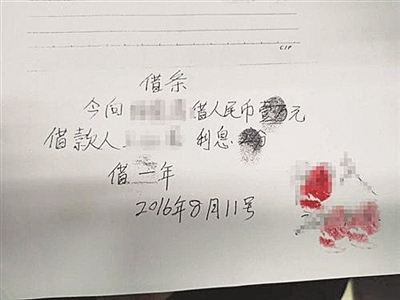 CIP
借条
今向 借人民币壹万元
借款人 利息
借一年
2016年8月11号